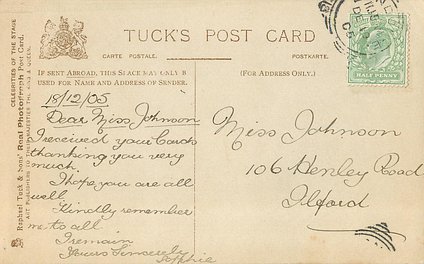 TUCK'S POST CARD
CARTE POSTALE.
POSTKARTE.
IF SENT ABROAD, THIS SPACE MAY ONLY BE
USED FOR NAME AND ADDRESS OF SENDER.
(FOR ADDRESS ONLY.)
CELEBRITIES OF THE STAGE
Raphael Tuck & Sons' Real Photograph Post Card.
ART PUBLISHERS TO THEIR MAJESTIES THE KING AND QUEEN.
HALF PENNY
18/12/05
Dear Miss Johnson
I received your Cards
thanking you very
much.
I hope you are all
well
Kindly remember
me to all
I remain
Yours Sincerely
Sophie
Miss Johnson
106 Henley Road
Ilford